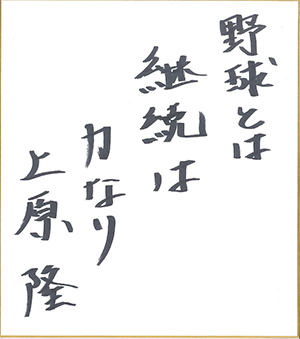 野球とは
継続は
力なり
上原隆